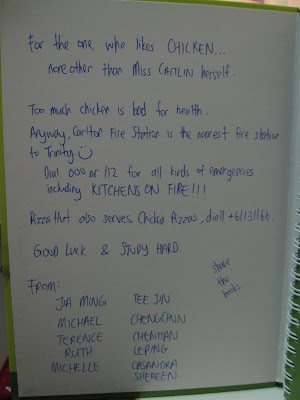 For the one who likes CHICKEN...
none other than Miss CAITLIN herself.
Too much chicken is bad for health.
Anyway, Carlton Fire Station is the nearest fire station
to Trinity
Dial 000 or 112 for all kinds of emergencies
including KITCHENS ON FIRE!!!
Pizza Hut also serves Chicken Pizzas, dial +61131166.
GOOD LUCK & STUDY HARD.
share
the
books
FROM:
JIA MING TEE JIN
MICHAEL CHENGCHNN
TERENCE CHENHAN
RUTH LEPING
MICHELLE CASANDRA
SHEREEN